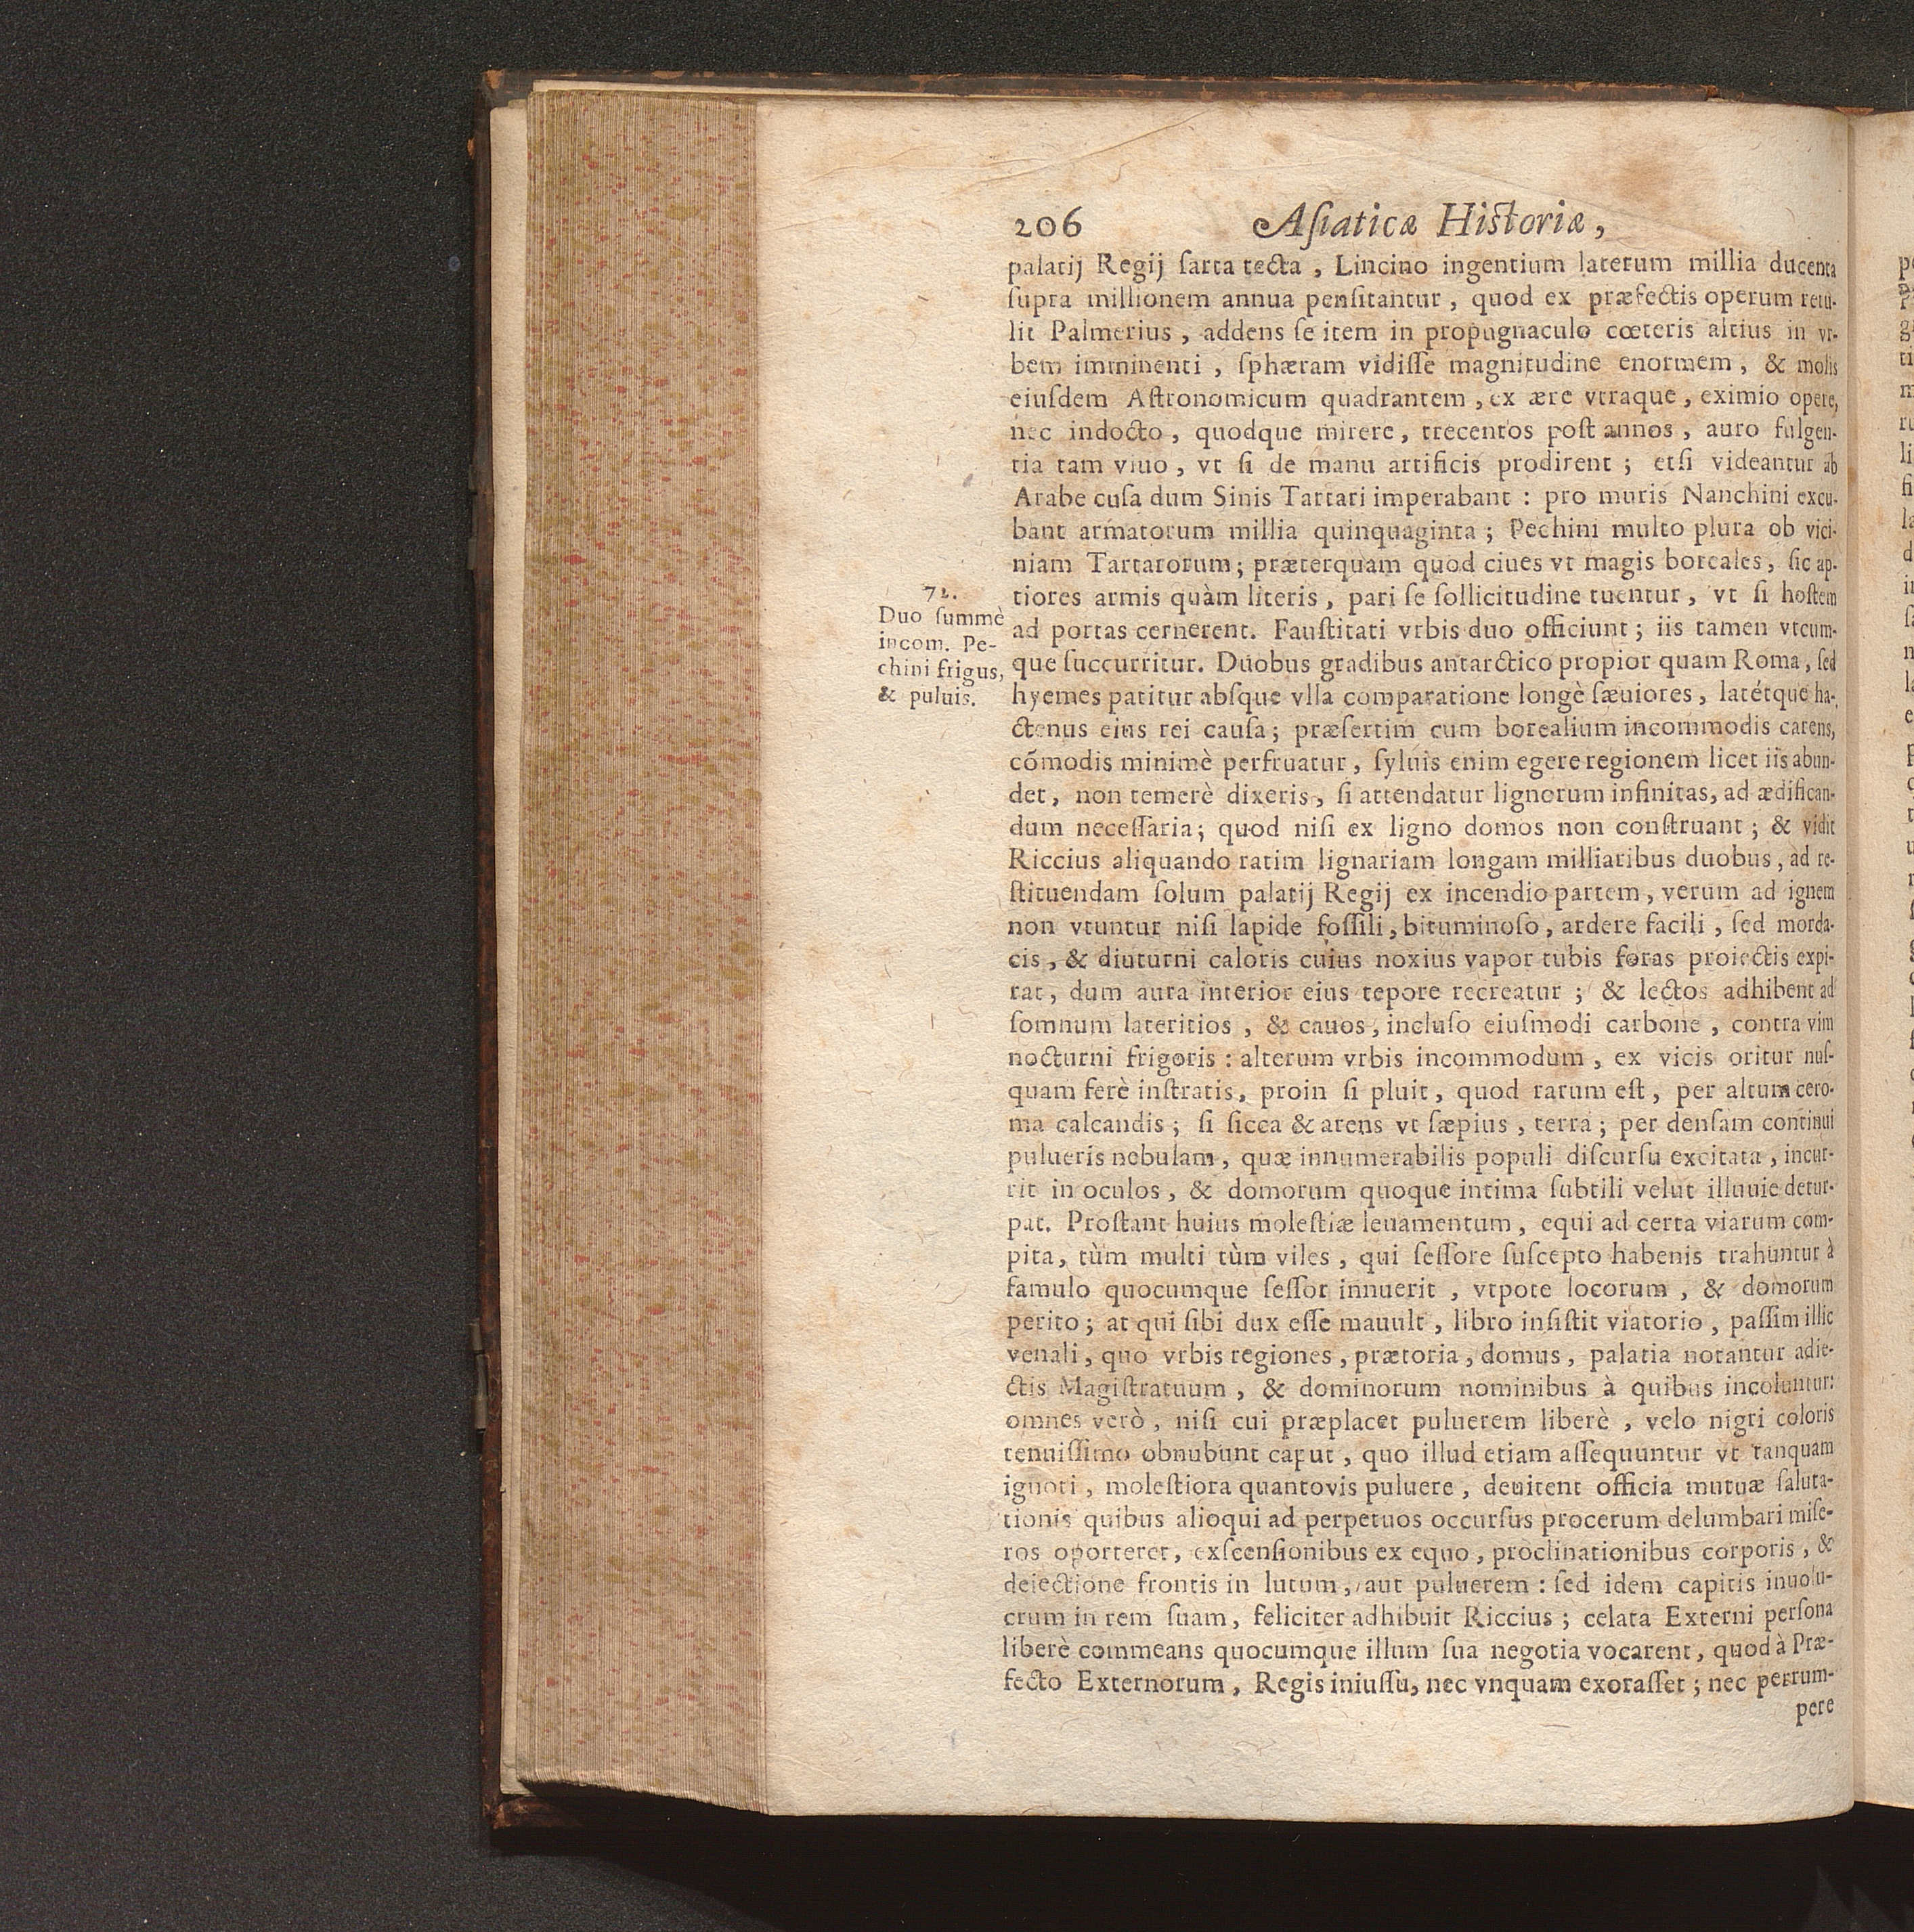 206 Aſiaticæ Hiſtoriæ,
palatij Regij ſarta tecta, Lincino ingentium laterum millia ducenta
ſupra millionem annua penſitantur, quod ex præfectis operum retu-
lit Palmerius, addens ſe item in propugnaculo cœteris altius in vr-
bem imminenti, ſphæram vidiſſe magnitudine enormem, & molis
eiuſdem Aſtronomicum quadrantem, ex ære vtraque, eximio opere,
nec indocto, quodque mirere, trecentos poſt annos, auro fulgen-
tia tam viuo, vt ſi de manu artificis prodirent; etſi videantur ab
Arabe cuſa dum Sinis Tartari imperabant: pro muris Nanchini excu-
bant armatorum millia quinquaginta; Pechini multo plura ob vici-
niam Tartarorum; præterquam quod ciues vt magis boreales, ſic ap-
tiores armis quàm literis, pari ſe ſollicitudine tuentur, vt ſi hoſtem
ad portas cernerent. Fauſtitati vrbis duo officiunt; iis tamen vtcum-
que ſuccurritur. Duobus gradibus antarctico propior quam Roma, ſed
hyemes patitur abſque vlla comparatione longè ſæuiores, latétque ha-
ctenus eius rei cauſa; præſertim cum borealium incommodis carens,
cōmodis minimè perfruatur, ſyluis enim egere regionem licet iis abun-
det, non temerè dixeris, ſi attendatur lignorum infinitas, ad ædifican-
dum neceſſaria; quod niſi ex ligno domos non conſtruant; & vidit
Riccius aliquando ratim lignariam longam milliaribus duobus, ad re-
ſtituendam ſolum palatij Regij ex incendio partem, verum ad ignem
non vtuntur niſi lapide foſſili, bituminoſo, ardere facili, ſed morda-
cis, & diuturni caloris cuius noxius vapor tubis foras proiectis expi-
rat, dum aura interior eius tepore recreatur; & lectos adhibent ad
ſomnum lateritios, & cauos, incluſo eiuſmodi carbone, contra vim
nocturni frigoris: alterum vrbis incommodum, ex vicis oritur nuſ-
quam ferè inſtratis, proin ſi pluit, quod rarum eſt, per altum cero-
ma calcandis; ſi ſicca & arens vt ſæpius, terra; per denſam continui
pulueris nebulam, quæ innumerabilis populi diſcurſu excitata, incur-
rit in oculos, & domorum quoque intima ſubtili velut illuuie detur-
pat. Proſtant huius moleſtiæ leuamentum, equi ad certa viarum com-
pita, tùm multi tùm viles, qui ſeſſore ſuſcepto habenis trahuntur à
famulo quocumque ſeſſor innuerit, vtpote locorum, & domorum
perito; at qui ſibi dux eſſe mauult, libro inſiſtit viatorio, paſſim illic
venali, quo vrbis regiones, prætoria, domus, palatia notantur adie-
ctis Magiſtratuum, & dominorum nominibus à quibus incoluntur:
omnes verò, niſi cui præplacet puluerem liberè, velo nigri coloris
tenuiſſimo obnubunt caput, quo illud etiam aſſequuntur vt tanquam
ignoti, moleſtiora quantovis puluere, deuitent officia mutuæ ſaluta-
tionis quibus alioqui ad perpetuos occurſus procerum delumbari miſe-
ros oporteret, exſcenſionibus ex equo, proclinationibus corporis, &
deiectione frontis in lutum, aut puluerem: ſed idem capitis inuolu-
crum in rem ſuam, feliciter adhibuit Riccius; celata Externi perſona
liberè commeans quocumque illum ſua negotia vocarent, quod à Præ-
fecto Externorum, Regis iniuſſu, nec vnquam exoraſſet; nec perrum-
pere
72.
Duo ſummè
incom. Pe-
chini frigus,
& puluis.